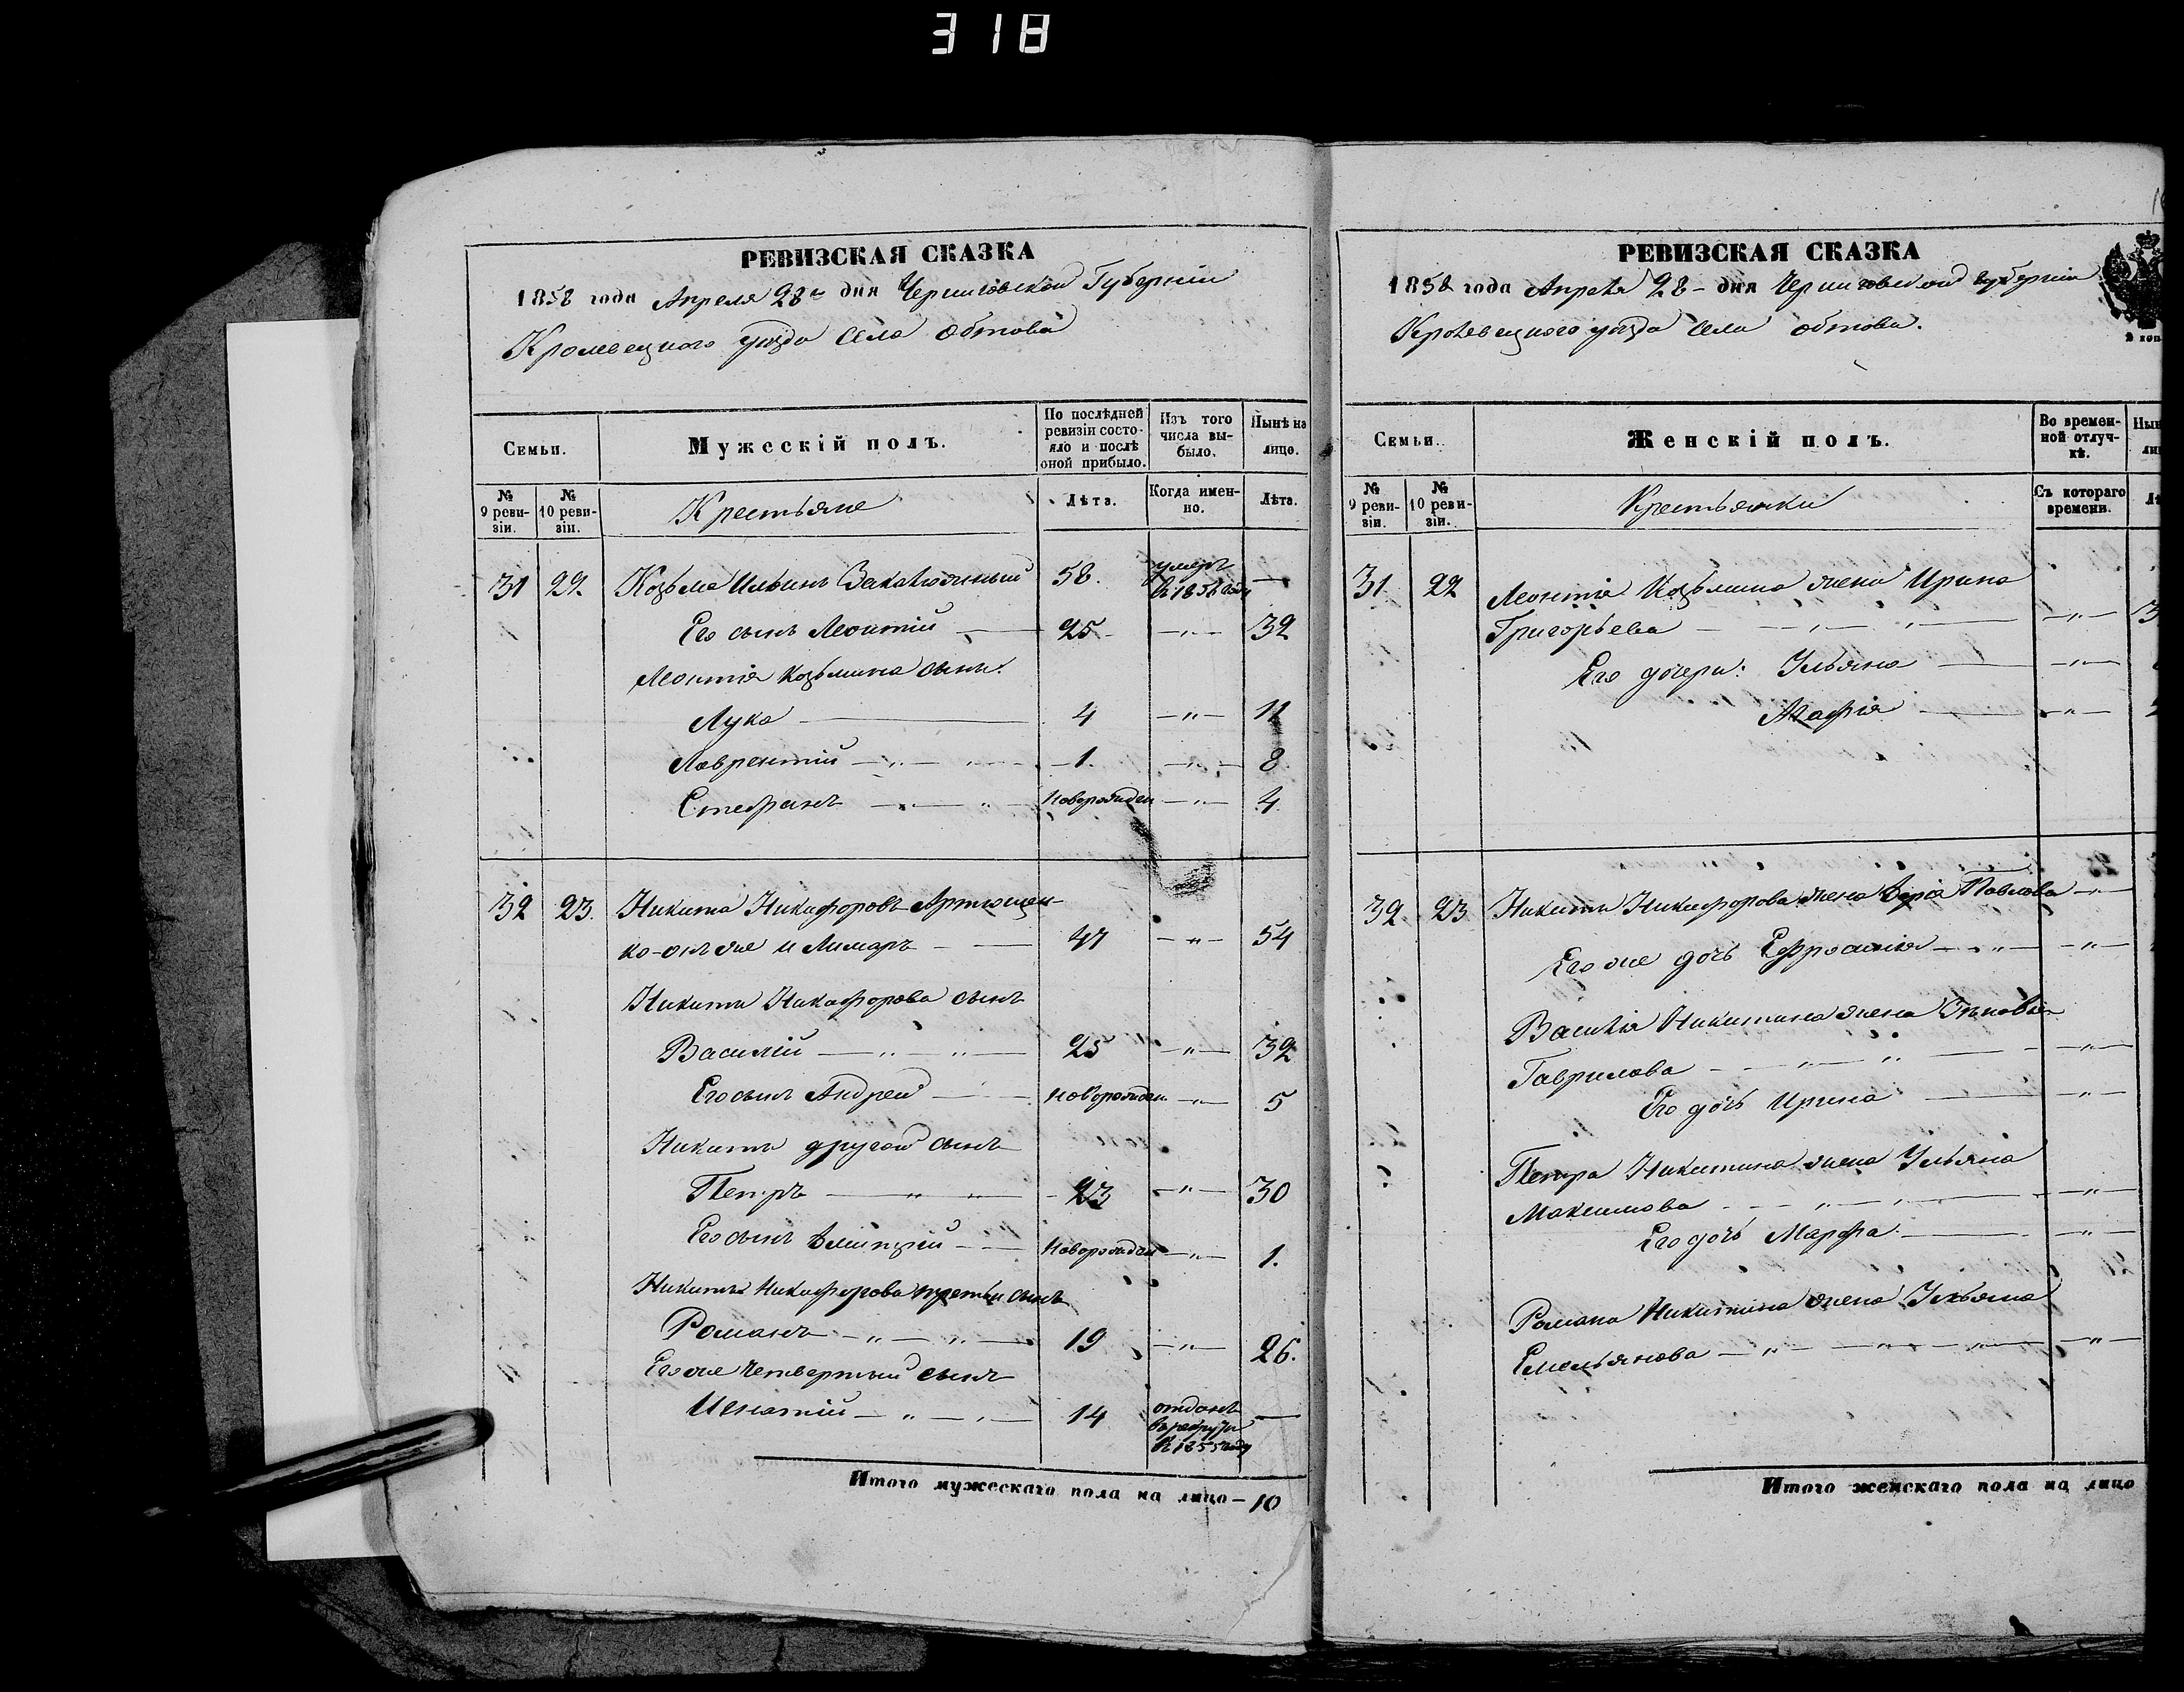 318
РЕВИЗСКАЯ СКАЗКА
1858 года Апреля 28 дня Черниговской Губернии
Кролевецкого уѣзда Села Обтова
Семьи.
Мужескій полъ.
По послѣдней ревизіи состояло и послѣ оной прибыло.
Изъ того числа выбыло.
Нынѣ на лицо.
№ 9 ревизіи.
№ 10 ревизіи.
Крестьяне
Лѣта.
Когда именно.
Лѣта.
31 22 Козьма Ильинъ 58. умеръ въ 1856 году —
Его сынъ Леонтій — 25 — " — 32
Леонтія Козьмина сын:
Лука — 4 — " — 11
Лаврентій — " — 1. — " — 8
Стефанъ — " — новорожден — " — 4
32 23. Никита Никифоровъ Артюшен-
ко-онъ же и Лимаръ — 47 — " — 54
Никиты Никифорова сынъ
Василій — " — " — 25 — " — 32
Его сынъ Андрей — новорожден — " — 5
Никиты другой сынъ
Петръ — " — " — 23 — " — 30
Его сынъ — новорожден — " — 1.
Никиты Никифорова третьи сынъ
Романъ — " — " — 19 — " — 26.
Его же Четвертый сынъ
Игнатій — " — " — 14 отданъ въ рекруты въ 1855 году —
Итого мужескаго пола на лицо — 10
РЕВИЗСКАЯ СКАЗКА
1858 года Апреля 28 - дня Черниговской губерніи
Кролевецкого уѣзда Села Обтова.
Семьи.
Женскій полъ.
Во временной отлучкѣ.
№ 9 ревизіи.
№ 10 ревизіи.
Крестьянки
Съ котораго времени.
31 22 Леонтія Козьмина жена Ирина
Григорьева — " — " — — " — 3
Его дочери: Ульяна — — " —
— " —
32 23 Никиты Никифорова жена Павлова — " —
Его же дочь Ефросинія — " — — " —
Василія Никитина жена
Гаврилова — " — " — — " —
Его дочь Ирина — — " —
Петра Никитина жена Ульяна
Максимова — " — " — — " —
Его дочь Марфа — — " —
Романа Никитина жена Ульяна
Емельянова — " — " — " — — " —
Итого женскаго пола на лицо